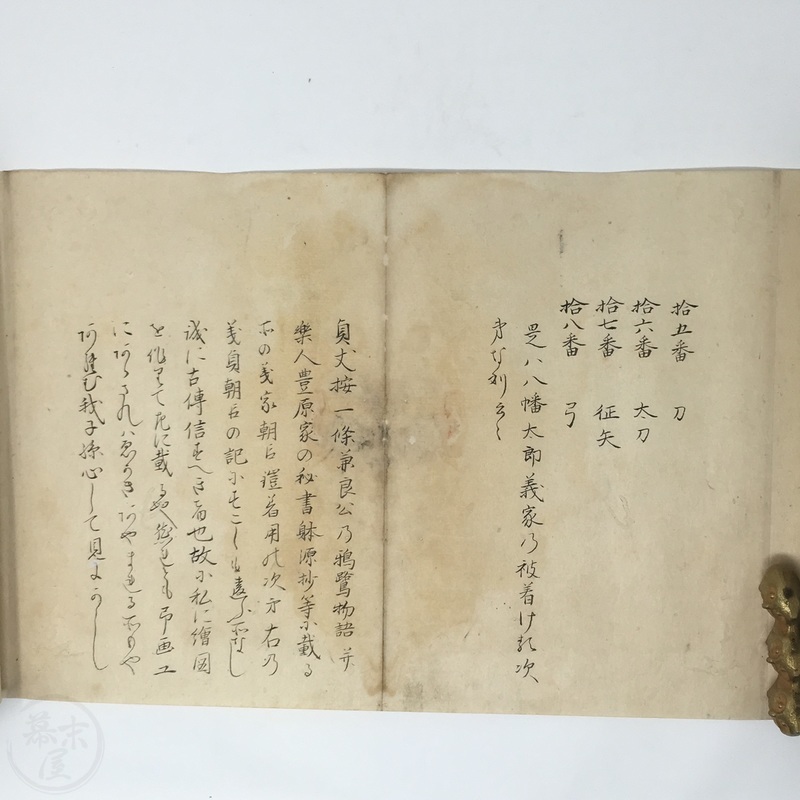 拾五番 刀
拾六番 太刀
拾七番 征矢
拾八番 弓
是ハ八幡太郎義家乃被着ける次
第なり云々
貞丈按一條兼良公乃鴉鷺物語并
楽人豊原家の秘書躰源抄等に載る
所の義家朝臣鎧着用の次第右乃
義貞朝臣の記にもすこしも違ふ所なし
誠に古傳信すへき者也故に私に繪図
を作りて左に載る
画工
にあらされハ
あやまれる所もや
我子孫心して見よかしし
幕末屋